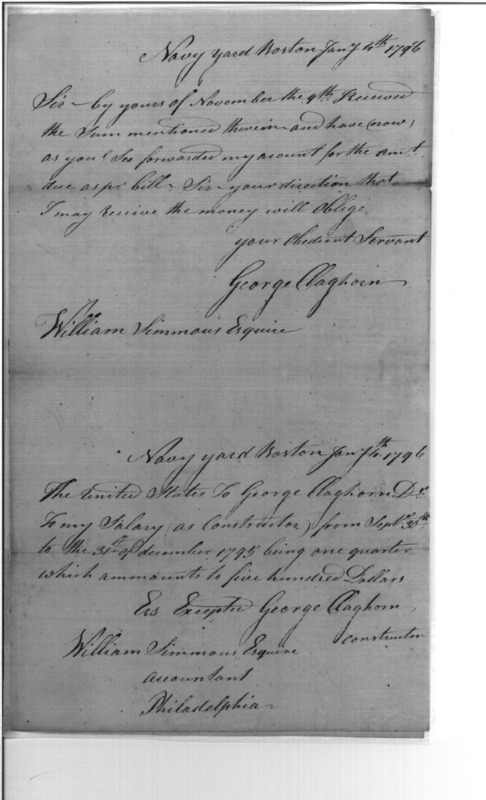 Navy yard Boston Jany 4th 1796
Sir - by yours of November the 9th Received
the Sum mentioned therein and have (now)
as you'l See forwarded my acount for the amt
due as pr bill - Sir - your direction that
I may Receive the money will oblige
your Obedient Servant
George Claghorn
William Simmons Esquire
Navy yard Boston Jany 4th 1796
The United States To George Claghorn Dr
To my Salary (as Constructor) from Septr 30th
to the 31st of december 1795 being one quarter
which ammounts to five hundred Dollars
Ers Excepted George Claghorn
constructor
William Simmons Esquire
accountant
Philadelphia